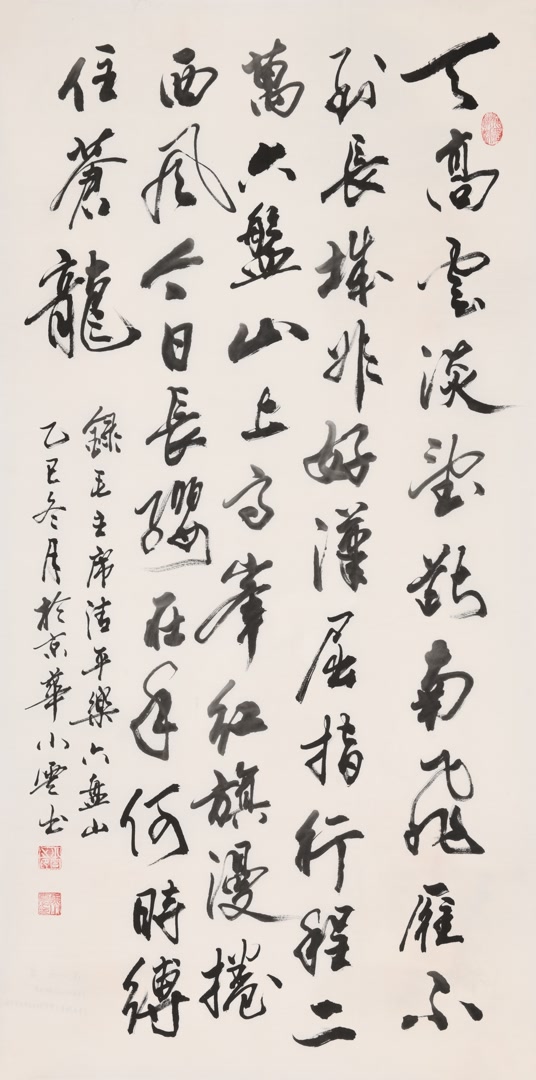 天高雲淡望斷南飛雁不
到長城非好漢屈指行程二
萬六盤山上高峯紅旗漫捲
西風今日長纓在手何時縛
住蒼龍
錄毛主席清平樂六盤山
乙巳冬月於京華小雲書